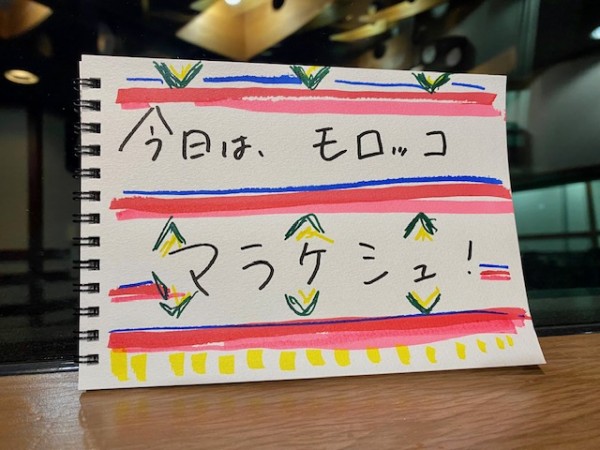 今日は、モロッコ
マラケシュ!